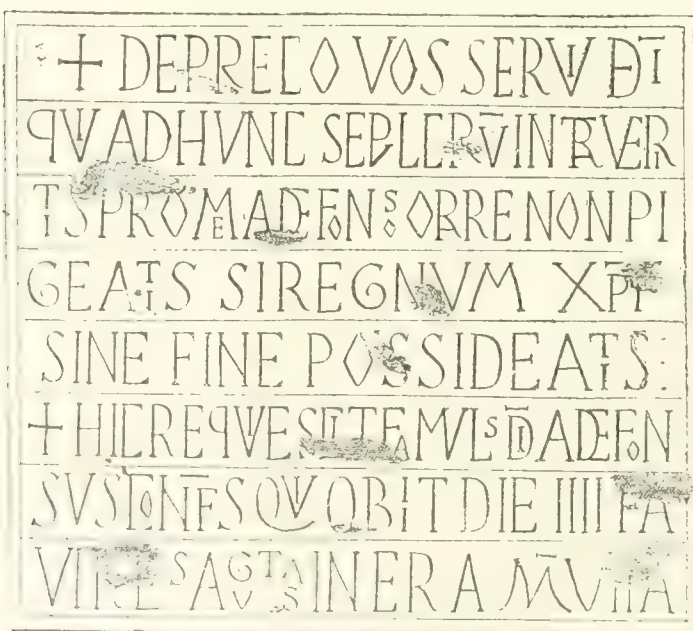 + DEPRECO VOS SERVI DI
QVI AD HVNC SEPVLCRV INTRAVERI
TIS PRO ME ADEFONSO ORRE NON PI
GEATIS SI REGNVM XPI
SINE FINE POSSIDEATIS:
+ HIC REQVIESIT FAMVLS DI ADEFON
SVS CONFSO QVI OBIIT DIE IIII FA
SAGVTAS IN ERA